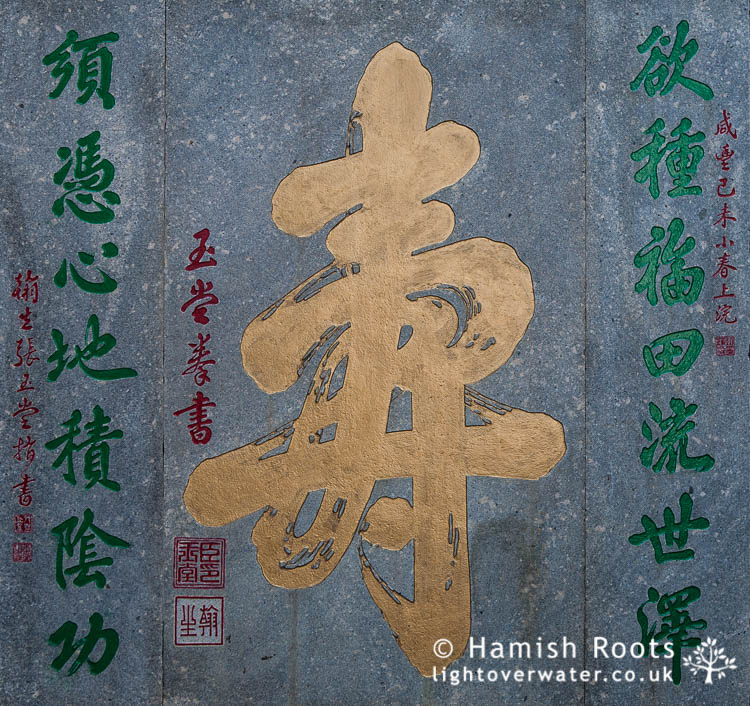 欲種福田流世澤
咸豐己未小春上浣
壽
玉堂拳書
臣印玉堂
翰生
須憑心地積陰功
翰生張玉堂指書
© Hamish Roots
lightoverwater.co.uk